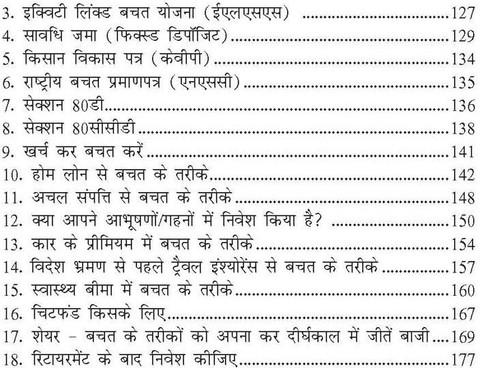 3. इक्विटी लिंक्ड बचत योजना (ईएलएसएस) ............................127
4. सावधि जमा (फिक्स्ड डिपॉजिट)............................129
5. किसान विकास पत्र (केवीपी)............................134
6. राष्ट्रीय बचत प्रमाणपत्र (एनएससी)............................135
7. सेक्शन 80डी............................136
8. सेक्शन 80सीसीडी............................138
9. खर्च कर बचत करें............................141
10. होम लोन से बचत के तरीके............................142
11. अचल संपत्ति से बचत के तरीके............................148
12. क्या आपने आभूषणों/गहनों में निवेश किया है?......................150
13. कार के प्रीमियम में बचत के तरीके............................154
14. विदेश भ्रमण से पहले ट्रैवल इंश्योरेंस से बचत के तरीके............157
15. स्वास्थ्य बीमा में बचत के तरीके............................160
16. चिटफंड किसके लिए............................167
17. शेयर - बचत के तरीकों को अपना कर दीर्घकाल में जीतें बाजी....169
18. रिटायरमेंट के बाद निवेश कीजिए............................177